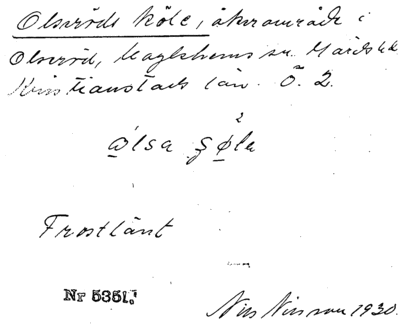 Olseröds köle, åkerområde i
Olseröd, Maglehems sn. Gärds hd
Kristianstads län. Ö. 2.
Frostlänt
Nr 5351.
Nils Nilsson 1930.